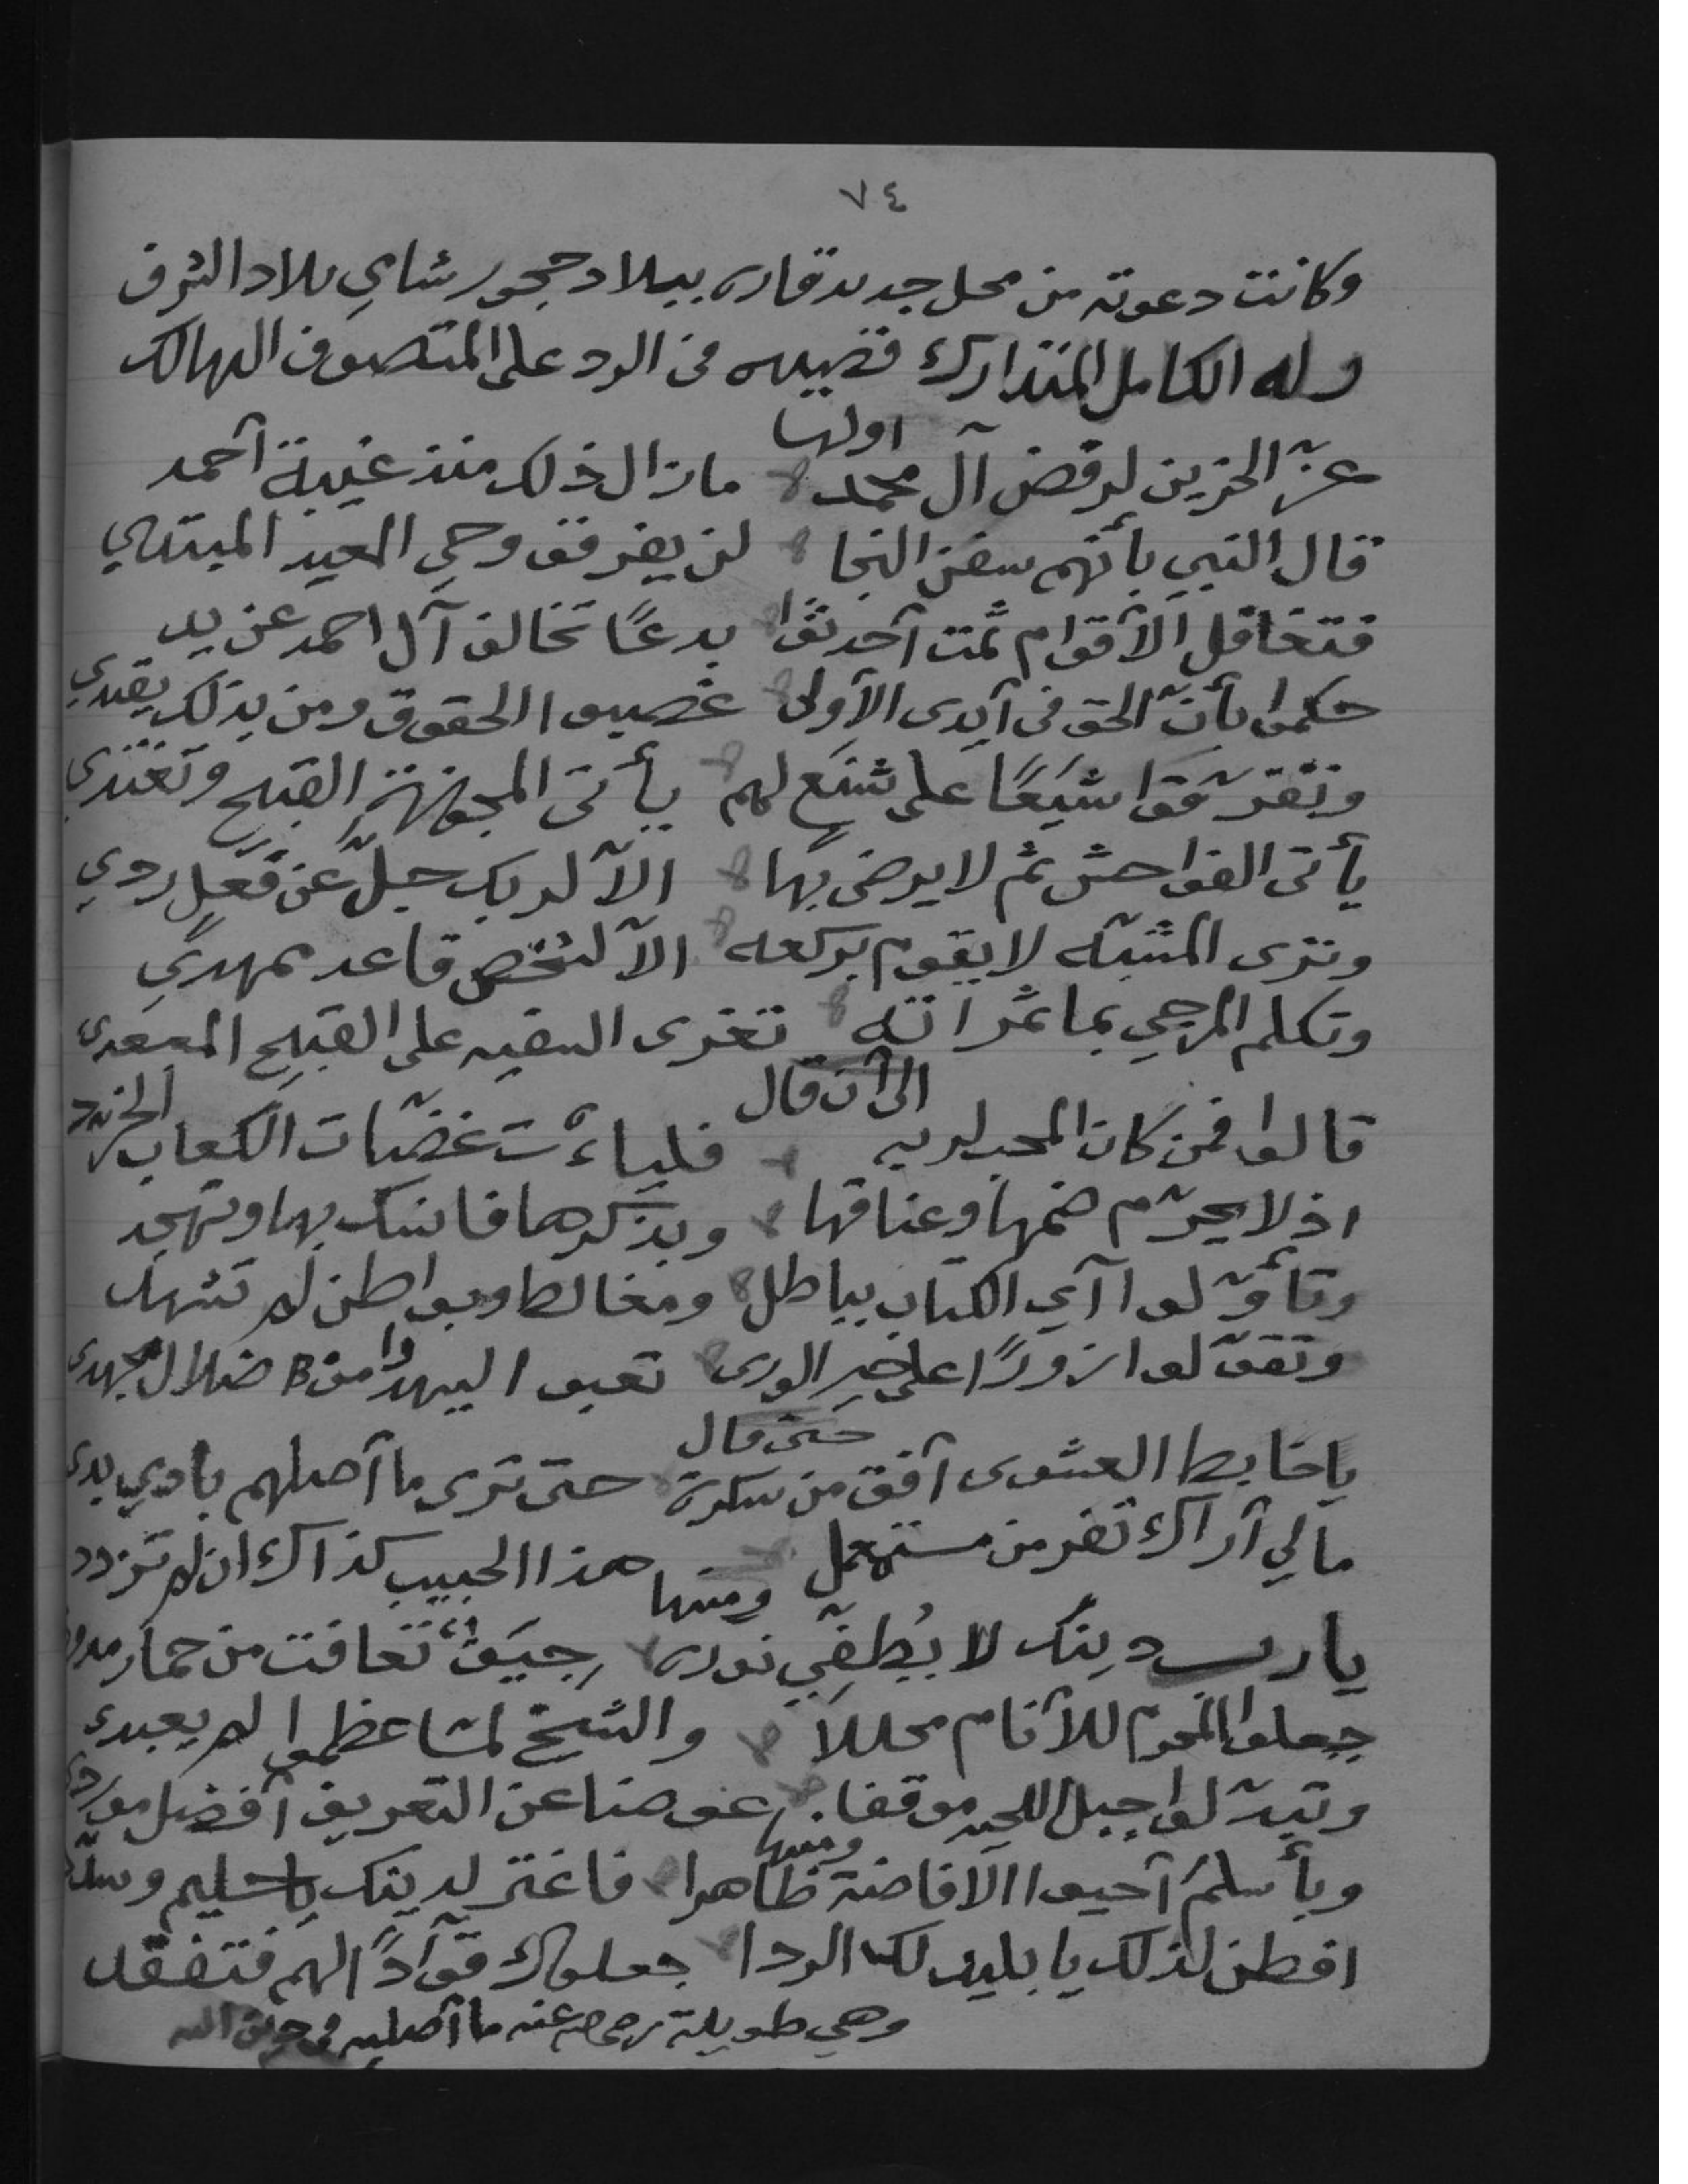 ٧٤
وكانت دعوته من محل جديد قاره ببلاد حجور شامي بلاد الشرف
وله الكامل المتدارك قصيده في الرد على المتصوف الهالك
اولها
عزّ الحزين لرفض آل محمد ما زال ذلك منذ غيبة أحمد
قال النبي بأنهم سفن النجا لن يفرقو وحي المعيد المبتدي
فتغافل الأقوام ثمت أحدثوا بدعًا تخالف آل احمد عن يد
حكموا بأنّ الحق في أيدى الأولى غصبوا الحقوق ومن بذلك يقتدي
وتفرّقوا شيعًا على شنع لهم يأتى القبيح وتغتدي
يأتى الفواحش ثم لا يرضى بها الآ لربك جلّ عن فعلٍ ردي
وترى المشبه لا يقوم بركعه الآ لشخص قاعد
وتكلم المرجي بما ثمراته تغرى السفيه على القبيح
الى أن قال
قالوا فمن كان المحب لربه ت غضّات الكعاب الخرد
اذ لا يحرّم ضمها وعناقها وبذكرها فانسك بها وتهجد
وتأوّلوا آي الكتاب بباطل ومغالط وبواطن لم تشهد
وتقوّلوا زورًا على خير الورى تبعوا اليهود وا من ضلال
حتى قال
يا خابط العشوى أفق من سكرة حتى ترى ما أصلهم بادي بدي
مالي أراك تفر من مستعمل هذا الحبيب كذاك ان لم تزدد
ومنها
يا رب دينك لا يُطفِّي نوره جيَفٌ تعافت من حمار
جعلوا المحرم للأنام محللاً والشيخ لمّا عظموا لم يعبد
وتبدّلوا جبل اللحيه موقفا عوضا عن التعريف أفضل مورد
ومنها
وبأسلم أحيوا الافاضة ظاهرا فاغتر لدينك يا سليم
افطن لذلك يا بليد لك الردا جعلوك قوّادًا لهم فتفقد
وهي طويلة رحمه عنه ما أصلبه في